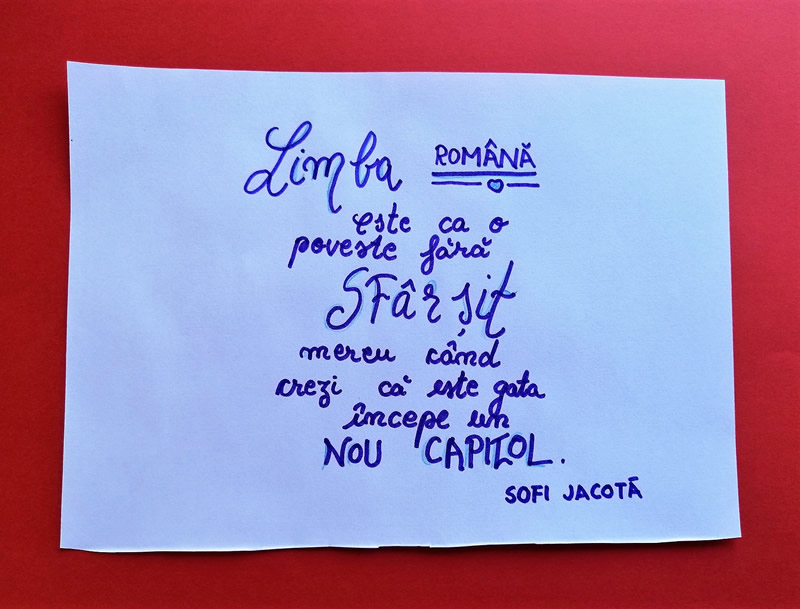 Limba ROMÂNĂ
este ca o
poveste fără
SFârșit
mereu când
crezi că este gata
începe un
NOU CAPITOL.
SOFI JACOTĂ